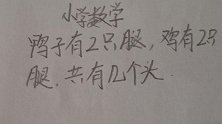 小学数学
鸭子有2只腿，鸡有2只
腿，共有几个头.